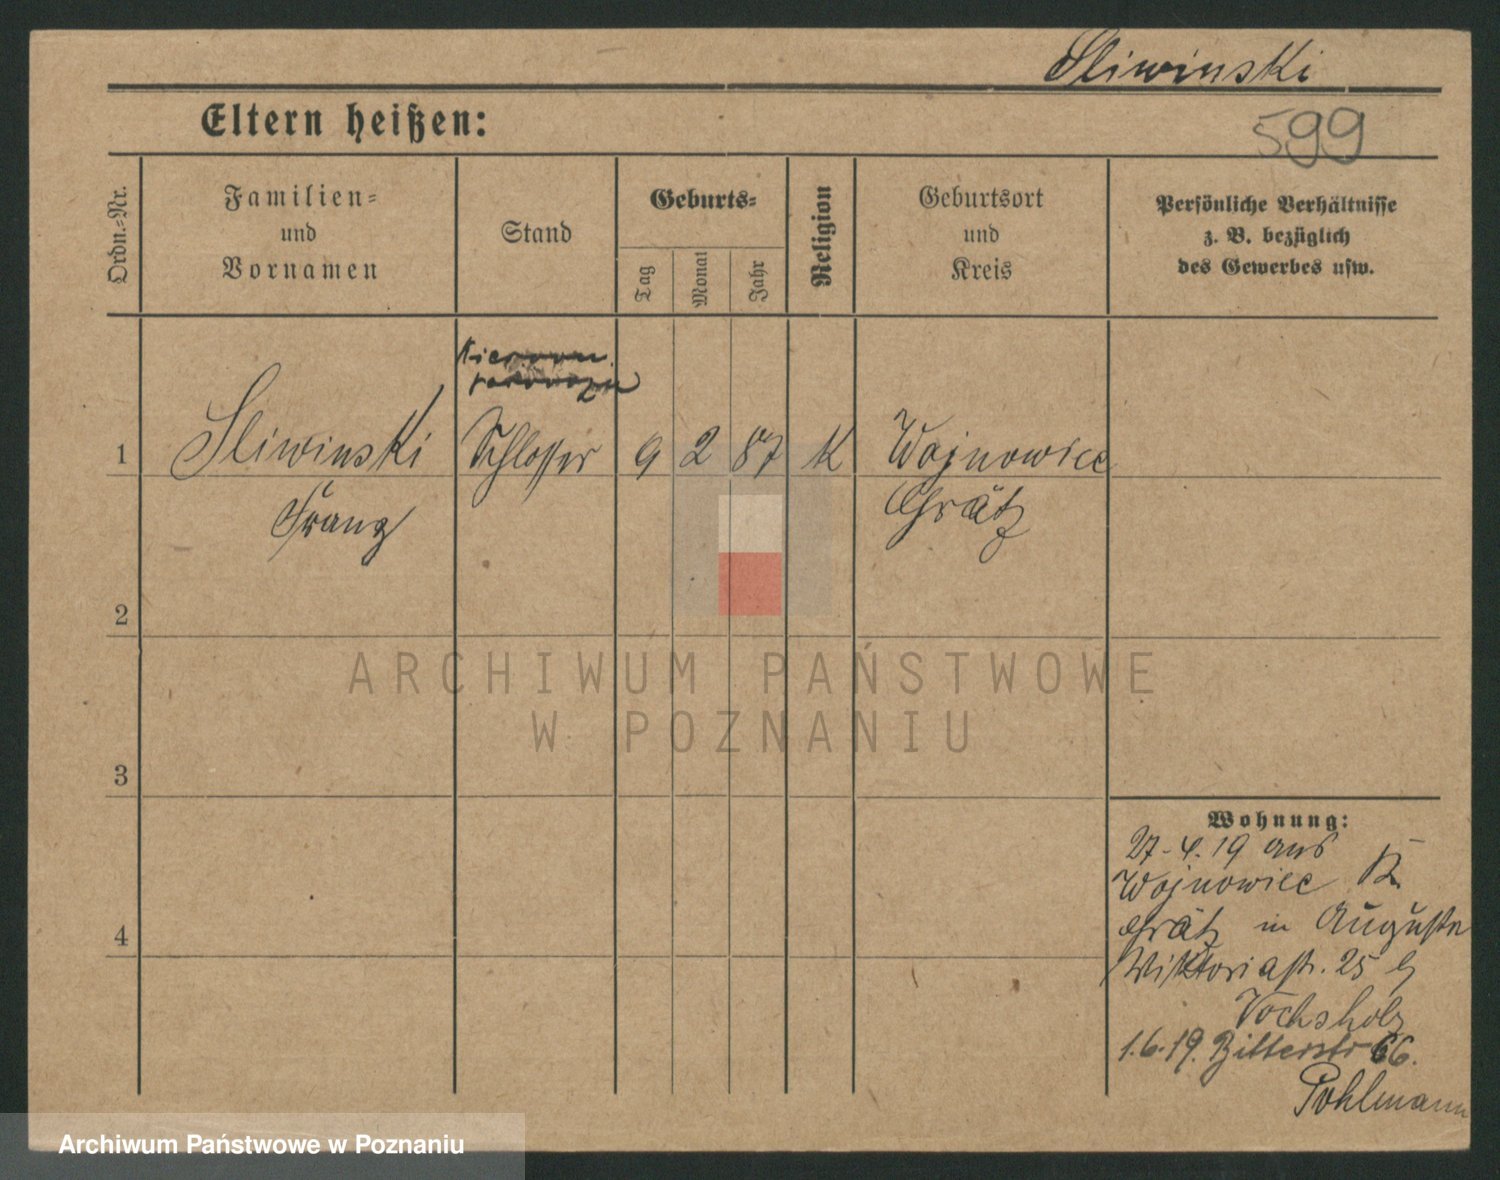 Sliwinski
Eltern heißen:
599
Ordn.-Nr.
Familien-
und
Vornamen
Stand
Geburts-
Tag
Monat
Jahr
Religion
Geburtsort
und
Kreis
Persönliche Verhältnisse
z. B. bezüglich
des Gewerbes usw.
1
Sliwinski
Franz
Schlosser
9
2
87
K
Wojnowice
Grätz
2
3
4
Wohnung:
27.4.19 aus
Wojnowiec K
Grätz in Auguste
Wiktoriastr. 25 b/
1.6.19. Ritterstr 66.
Pohlmann
ARCHIWUM PAŃSTWOWE
W POZNANIU
Archiwum Państwowe w Poznaniu